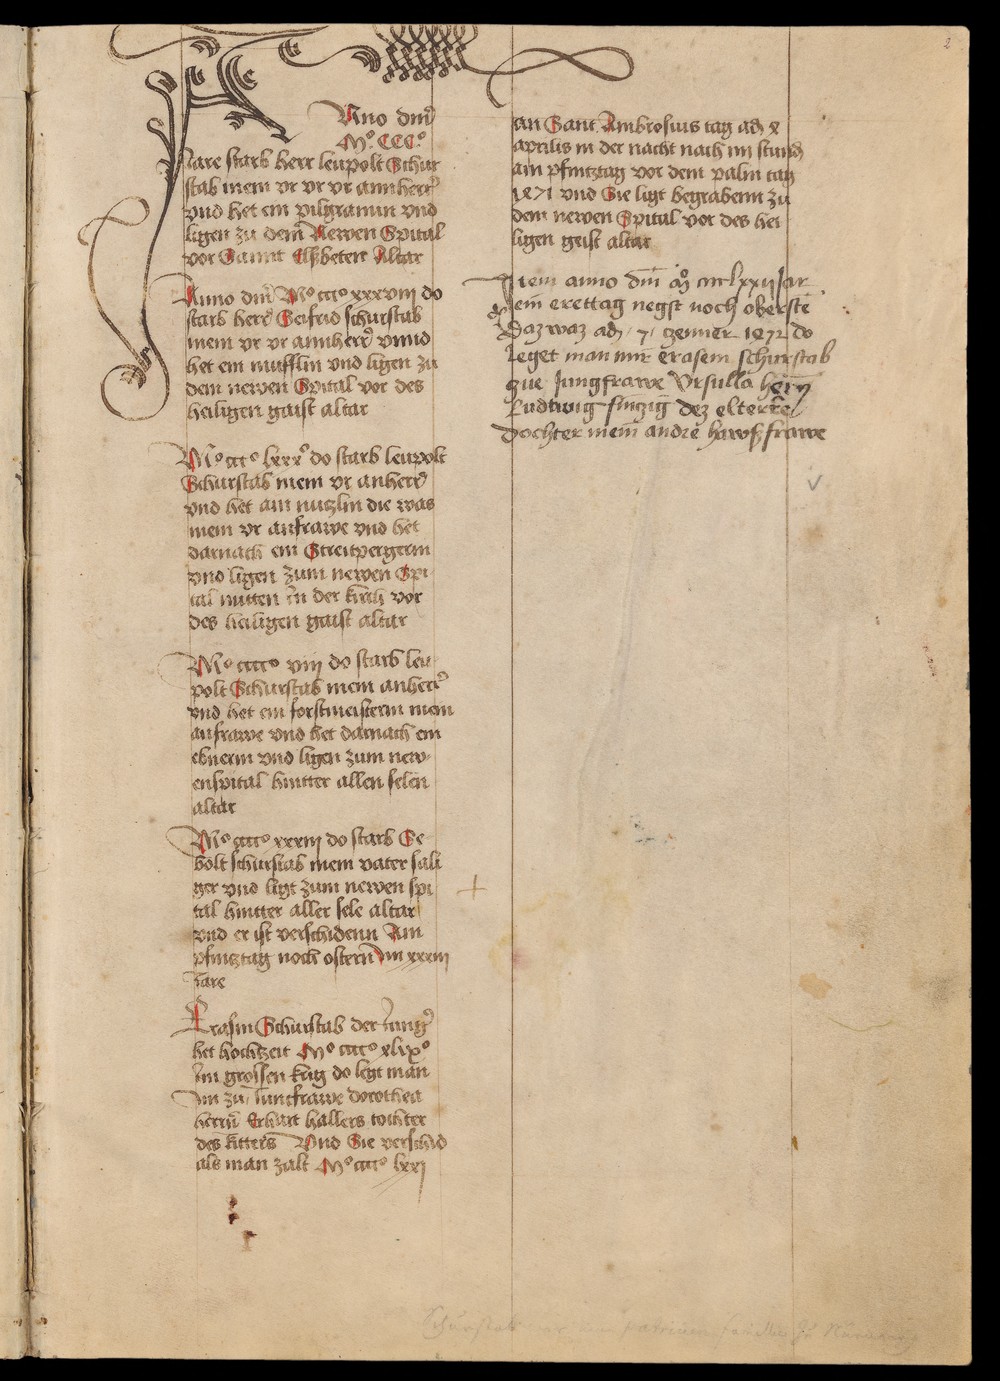 2
Anno dm̄
M° CCC°
Jare starb herr leupolt Schur
stab mein vr vr vr annherr
vnd het ein pilgramin vnd
ligen zu dem Newen Spital
vor Sannt Elsbeten Altar
Anno dm̄ M° ccc° xxxviij do
starb herr Seifrid schurstab
mein vr vr annherr vnnd
het ein mufflin vnd ligen zu
dem newen Spital vor des
heiligen gaist altar
M° ccc° lxxx° do starb leupolt
Schurstab mein vr anherr
vnd het ain nutzlin die was
mein vr anfrawe vnd het
darnach ein Streitpergerin
vnd ligen zum newen Spi
tal mitten in der kirch vor
des heiligen gaist altar
M° cccc° viij do starb leu
polt Schurstab mein anherr
vnd het ein forstmeisterin mein
anfrawe vnd het darnach ein
ebnerin vnd ligen zum new
enspital hintter allen selen
altar
M° cccc° xxxiij do starb Se
bolt schurstab mein vater sali
ger vnd ligt zum newen spi
tal hintter aller sele altar
vnd er ist verschidenn Am
pfintztag noch ostern Im xxxiij
Jare
Erasm Schurstab der Jung
het hochtzeit M° cccc°
Im grossen krig do legt man
Im zu Junckfrawe dorothea
herrn Erhart hallers tochter
des Ritters Vnd Sie verschid
als man zalt M° cccc° lxxj
an Sant Ambrosius tag adj x
aprilis in der nacht nach iiij stund
am pfintztag vor dem palm tag
1471 vnd Sie ligt begrabenn zu
dem newen Spital vor des hei
ligen geist altar
Item anno dm̄ M° cccclxxij Jar
eim erettag negst noch oberste
Daz waz adj 7 Jenner 1472 do
leget man mir erasem schurstab
Jungfrawe Vrsulla hern
Ludwig dez elterre
dochter mein andre hawsfrawe
+
v
Schurstab patricien familie zu Nürnberg